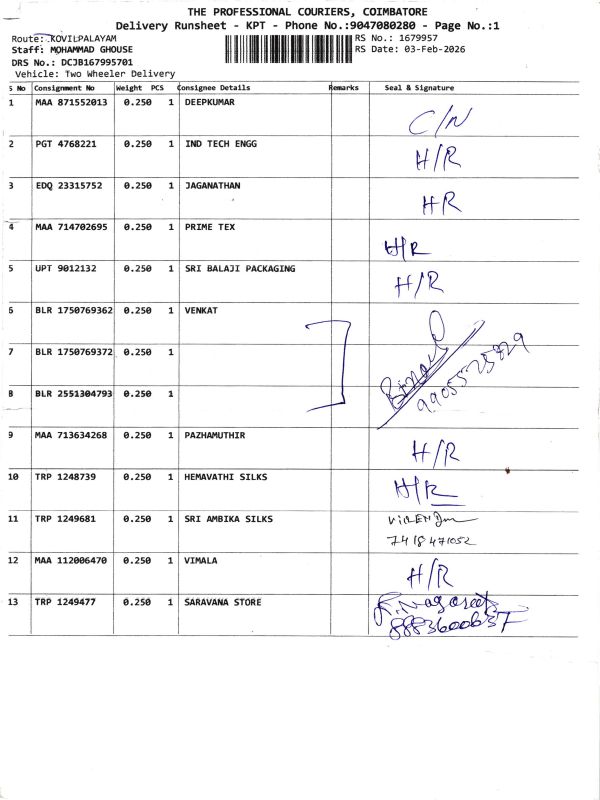 THE PROFESSIONAL COURIERS, COIMBATORE
Delivery Runsheet - KPT - Phone No.:9047080280 - Page No.:1
Route: KOVILPALAYAM RS No.: 1679957
Staff: MOHAMMAD GHOUSE RS Date: 03-Feb-2026
DRS No.: DCJB167995701
Vehicle: Two Wheeler Delivery
S No Consignment No Weight PCS Consignee Details Remarks Seal & Signature
1 MAA 871552013 0.250 1 DEEPKUMAR C/N
2 PGT 4768221 0.250 1 IND TECH ENGG H/R
3 EDQ 23315752 0.250 1 JAGANATHAN HR
4 MAA 714702695 0.250 1 PRIME TEX H/R
5 UPT 9012132 0.250 1 SRI BALAJI PACKAGING H/R
6 BLR 1750769362 0.250 1 VENKAT
7 BLR 1750769372 0.250 1
8 BLR 2551304793 0.250 1
9 MAA 713634268 0.250 1 PAZHAMUTHIR H/R
10 TRP 1248739 0.250 1 HEMAVATHI SILKS H/R
11 TRP 1249681 0.250 1 SRI AMBIKA SILKS
7418471052
12 MAA 112006470 0.250 1 VIMALA H/R
13 TRP 1249477 0.250 1 SARAVANA STORE
8883600637